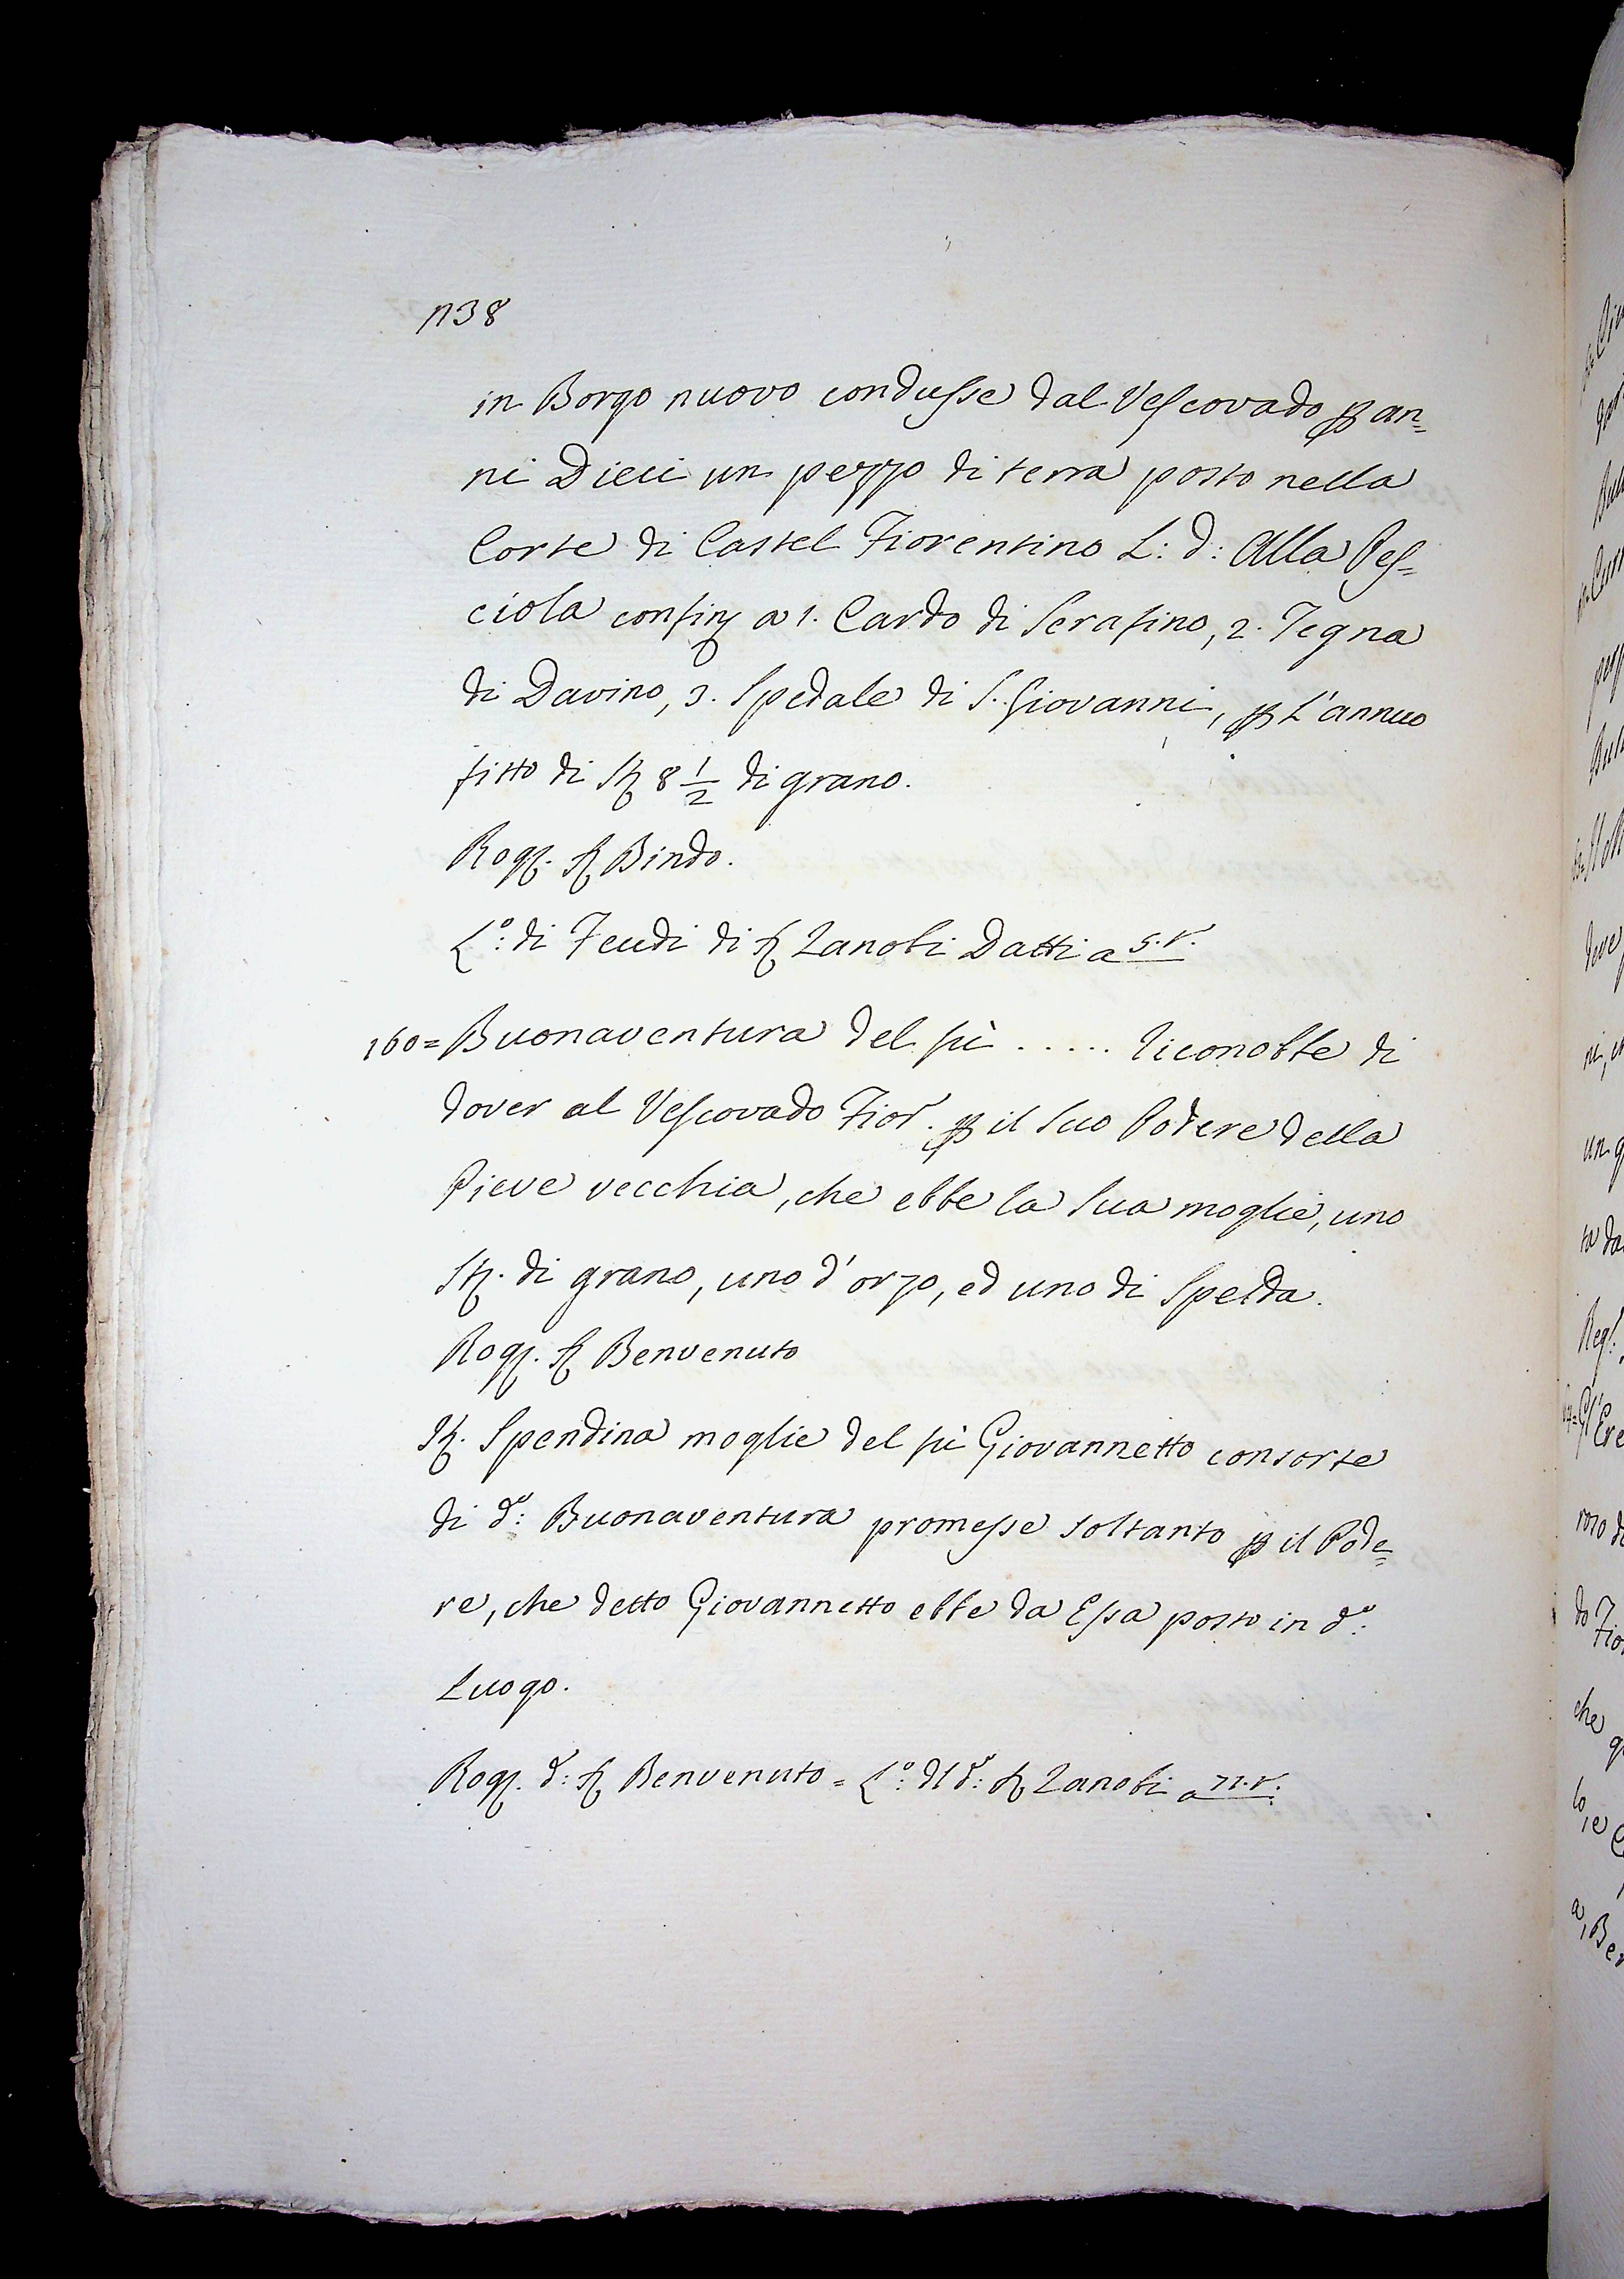 1138
in Borgo nuovo condusse dal Vescovado p an=
ni Dieci un pezzo di terra posto nella
Corte di Castel Fiorentino L: d: Alla Pes=
ciola confin a 1. Cardo di Serafino, 2. Tegna
di Davino, 3. Spedale di S. Giovanni, p L'annuo
fitto di St 8 1/2 di grano.
Rog. S Bindo.
L.º: di Feudi di S Zanobi Datti a 5.r.
160= Buonaventura del fù ..... Riconobbe di
dover al Vescovado Fior. p il Suo Podere della
Pieve vecchia, che ebbe la Sua moglie, uno
St. di grano, uno d'orzo, ed uno di Spelda.
Rog. S Benvenuto
It. Spendina moglie del fù Giovannetto consorte
di dº: Buonaventura promesse soltanto p il Pode=
re, che detto Giovannetto ebbe da Essa posto in dº:
Luogo.
Rog. dº: S Benvenuto = L.º: dl dº: S Zanobi a